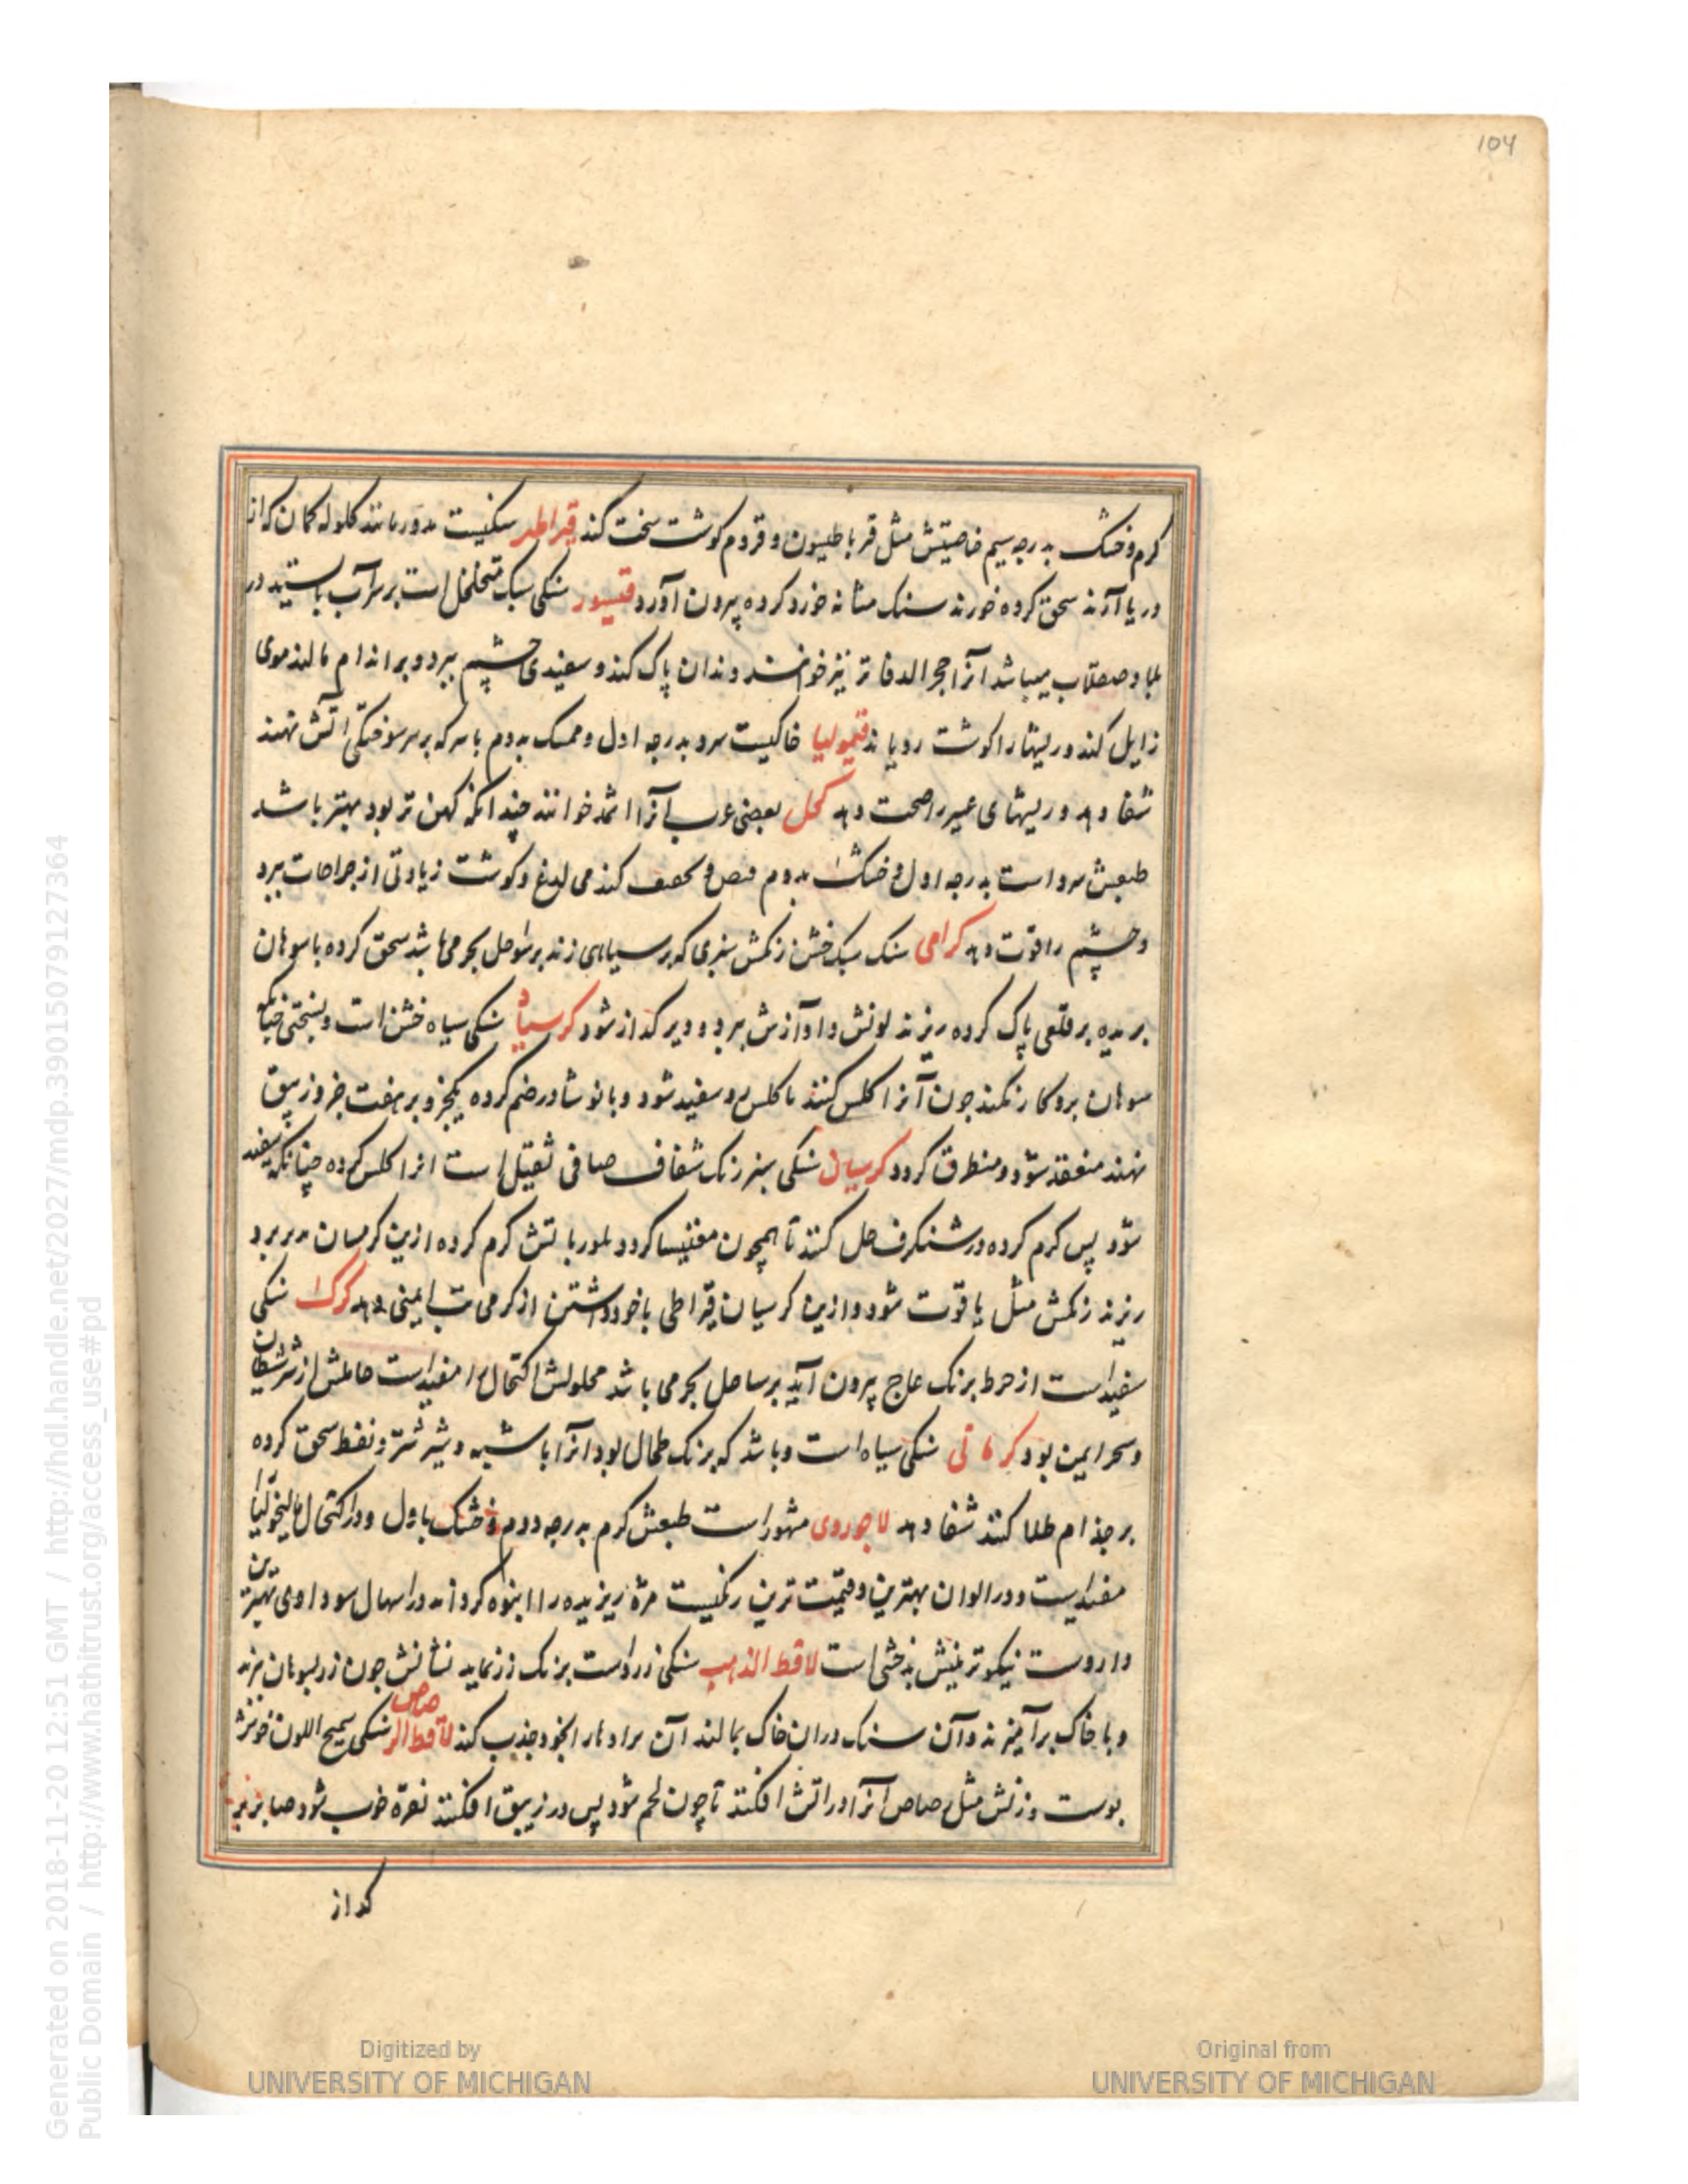 104
کرم و خشک بدرجه سیم خاصیتش مثل قرباطیسون و قروم کوشت سخت کند قیراطیر سنکیست مدور مانند کلوله کمان که از
دریا آرند سحق کرده خورند سنک مثانه خورد کرده بیرون آورد قیسور سنکی سبک متخلخل است بر سر آب باستید در
و صقلاب میباشد انرا حجر الدفاتر نیز خوانند دندان پاک کند و سفیدی چشم ببرد و بر اندام مالند موی
زایل کند و ریشها را کوشت رویاند قیمولیا خاکیست سرد بدرجه اول و ممسک بدوم با سرکه بر سر سوختکی اتش نهند
شفا دهد و ریشهای عسیر را صحت دهد کحل بعضی عرب آنرا اثمد خوانند چندانکه کهن تر بود بهتر باشد
طبعش سرد است بدرجه اول و خشک بدوم کند می لدغ و کوشت زیادتی از جراحات ببرد
و چشم را قوت دهد کرامی سنک سبک خشن رنکش سبزی که بر سیاهی زند بر سواحل بحر می باشد سحق کرده با سوهان
بریده بر قلعی پاک کرده ریزند لونش و آوازش ببرد و دیر کداز شود کرسیاد سنکی سیاه خشن است و بسختی چنانکه
سوهان برو کار نکند چون آنرا کلس کنند تا کلس و سفید شود و با نوشادر ضم کرده یکجزو بر هفت جزو زیبق
نهند منعقد شود و منطرق کردد کرسیان سنکی سبز رنک شفاف صافی ثقیل است انرا کلس کرده چنانکه سفید
شود پس کرم کرده در شنکرف حل کنند تا همچون مغنیسا کردد بلور باتش کرم کرده ازین کرسیان برو
ریزند رنکش مثل یاقوت شود و ازین کرسیان قیراطی با خود داشتن از کرمی تب ایمنی دهد کرک سنکی
سفید است از خرط برنک عاج بیرون آید بر ساحل بحر می باشد محلولش اکتحال را مفید است حاملش از شر شیطان
و سحر ایمن بود کرمانی سنکی سیاه است و باشد که برنک طحال بود انرا با شبه و شیر شتر و نفط سحق کرده
بر جذام طلا کنند شفا دهد لاجوردی مشهور است طبعش کرم بدرجه دوم و خشک باول و در اکتحال مالیخولیا
مفید است و در الوان بهترین و قیمت ترین رنکیست مژه ریزیده را انبوه کرداند در اسهال سوداوی بهترین
داروست نیکوترینش بدخشی است لاقط الذهب سنکی زرد است برنک زر نماید نشانش چون زر بسوهان برند
و با خاک برآمیزند و آن سنک در ان خاک بمالند آن برادها را بخود جذب کند لاقط الرصاص سنکی سمیج اللون خونش
بوست وزنش مثل رصاص انرا در اتش افکنند تا چون لحم شود پس در زیبق افکنند نقره خوب شود صابر بر
کداز
Generated on 2018-11-20 12:51 GMT / http://hdl.handle.net/2027/mdp.39015079127364
Public Domain / http://www.hathitrust.org/access_use#pd
Digitized by
UNIVERSITY OF MICHIGAN
Original from
UNIVERSITY OF MICHIGAN